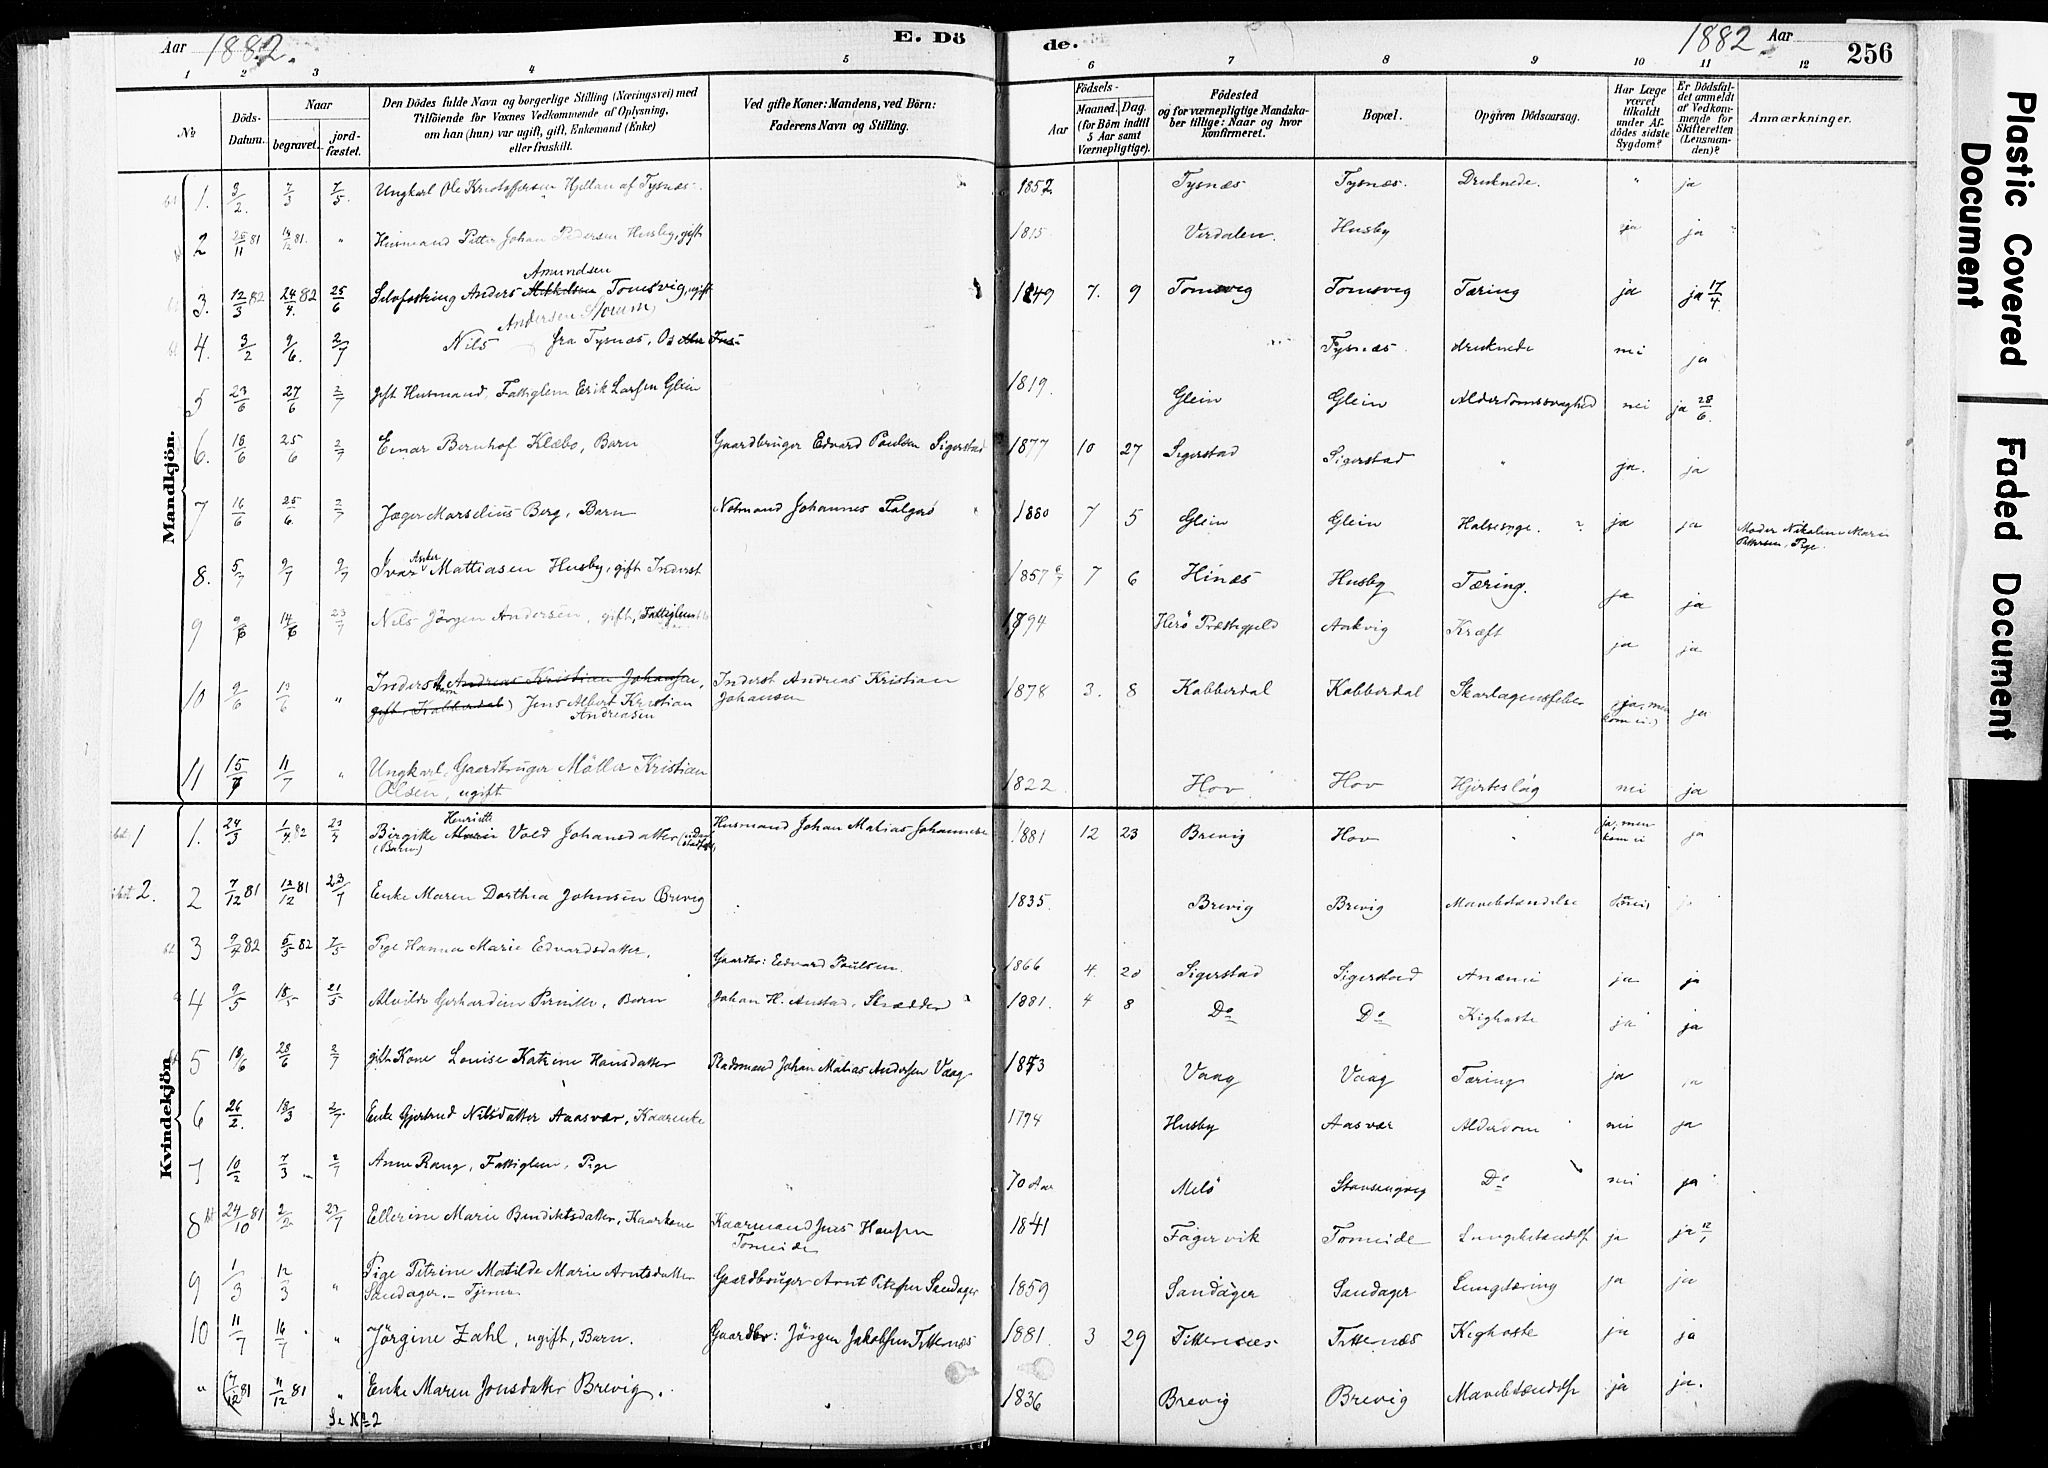 Aar 1882. E. Döde. 1882 Aar 256
1 2 3 4 5 6 7 8 9 10 11 12
No
Döds-Datum.
Naar
begravet.
jordfæstet.
Den Dödes fulde Navn og borgerlige Stilling (Næringsvei) med
Tilföiende for Voxnes Vedkommende af Oplysning,
om han (hun) var ugift, gift, Enkemand (Enke)
eller fraskilt.
Ved gifte Koner: Mandens, ved Börn:
Faderens Navn og Stilling.
Födsels-
Aar
Maaned. Dag.
(for Börn indtil
5 Aar samt
Værnepligtige).
Födested
og for værnepligtige Mandska-
ber tillige: Naar og hvor
konfirmeret.
Bopæl.
Opgiven Dödsaarsag.
Har Læge
været
tilkaldt
under Af-
dödes sidste
Sygdom?
Er Dödsfal-
det anmeldt
af Vedkom-
mende for
Skifteretten
(Lensman-
den)?
Anmærkninger.
Mandkjön.
1. 3/2. 7/3 7/5. Ungkarl Ole Kristoffersen Hjellan af Tysnæs. 1852 Tysnæs Tysnæs. Druknede. " ja
2 25/11 81 14/12 81. " Husmand Petter Johan Pedersen Husby, gift 1815 Virdalen. Husby ja ja
Amundsen
3. 12/3 82 24/4. 82 25/6 Selvfostring Anders Mikkelsen Tomsvig, ugift 1849 7. 9 Tomsvig Tomsvig Tæring ja ja 17/4
4. 3/2 9/6. 2/7 Nils Andersen fra Tysnæs, Tysnæs druknede nei ja
5 23/6 27/6 2/7 gift Husmand, Fattiglem Erik Larsen Glein 1819. Glein Glein Alderdomssvaghed nei ja 28/6.
6. 18/6 25/6 2/7 Einar Bernhof Klæbo, Barn Gaardbruger Edvard Paulsen Sigerstad 1877 10 27 Sigerstad Sigerstad " ja. ja
7 16/6 25/6. 2/7 Jæger Marselius Berg, Barn Notmand Johannes Falgerö 1880 7 5 Glein Glein Halsesyge. ja ja Moder Nikoline Marie
Pettersen, Pige.
8. 5/7 9/7 9/7 Ivar Mattiasen Husby, gift Inderst 1857 7 6 Hinæs Husby Tæring. ja ja
9 14/6 23/7 Nils Jörgen Andersen, gift, Fattiglem Herö Præstegjeld Aakvig Kræft ja ja
10 9/6 13/6 " Inderst Andreas Kristian Johansen, Inderst Andreas Kristian 1878 3. 8 Kabberdal Kobberdal Skarlagensfeber ja, men
gift, Kobberdal) Jens Albert Kristian Johansen kom ei.) ja
Andreasen
11 15/7 11/7 " Ungkarl, Gaardbruger Möller Kristian
Olsen, ugift 1822 Hov Hov Hjerteslag nei ja
Kvindekjön
Henriette
1. 24/3 1/4. 82 23/4 Birgitte Marie Vold Johansdatter Husmand Johan Matias Johannesen 1881 12 23 Brevig Hov " ja, men
(Barn) kom ei ja
2 7/12 81 12/12 81 23/7 Enke Maren Dorthea Johnsen Brevig 1835. Brevig Brevig Mavebetændelse
3 82 5/5 82 7/5 Pige Hanna Marie Edvardsdatter, Gaardbr: Edvard Paulsen. 1866 4. 20 Sigerstad Sigerstad Anæmi ja ja
4 9/5 18/5 21/5 Alvilde Gerhardine Pernille, Barn Johan H. Anstad, Skrædder 1881. 4 8 Do Do Kighoste ja ja
5 18/6 28/6 2/7 gift Kone Louise Katrine Hansdatter Pladsmand Johan Matias Andersen Vaag Vaag Vaag Tæring ja ja
6 26/2. 18/3 2/7. Enke Gjertrud Nilsdatter Aasvær, Kaarenke 1794 Husby Aasvær Alderdom nei ja
7 10/2 7/3 2/7 Anne Rang, Fattiglem, Pige 70 Aar Melö Do nei ja
8 24/10 81 2/2 23/7 Ellerine Marie Bendiktsdatter, Kaarkone Kaarmand Jens Hansen
Tomeide 1841 Fagervik Tomeide Lungebetændelse ja ja 12/1
9 1/3 12/3 " Pige Petrine Matilde Marie Arntsdatter Gaardbruger Arnt Petersen Sandager 1859 Sandager Sandager Lungetæring ja ja
Sandager. Tjener
10 11/7 16/7 " Jörgine Zahl, ugift, Barn. Gaardbr: Jörgen Jakobsen Titternæs 1881 3 29 Titternæs Titternæs Kighoste ja ja
" (7/12 81 11/12 81 " Enke Maren Jonsdatter Brevig. 1836 Brevig Brevig Mavebetændelse ja ja.
Se No 2
Plastic Covered
Document
Faded Document